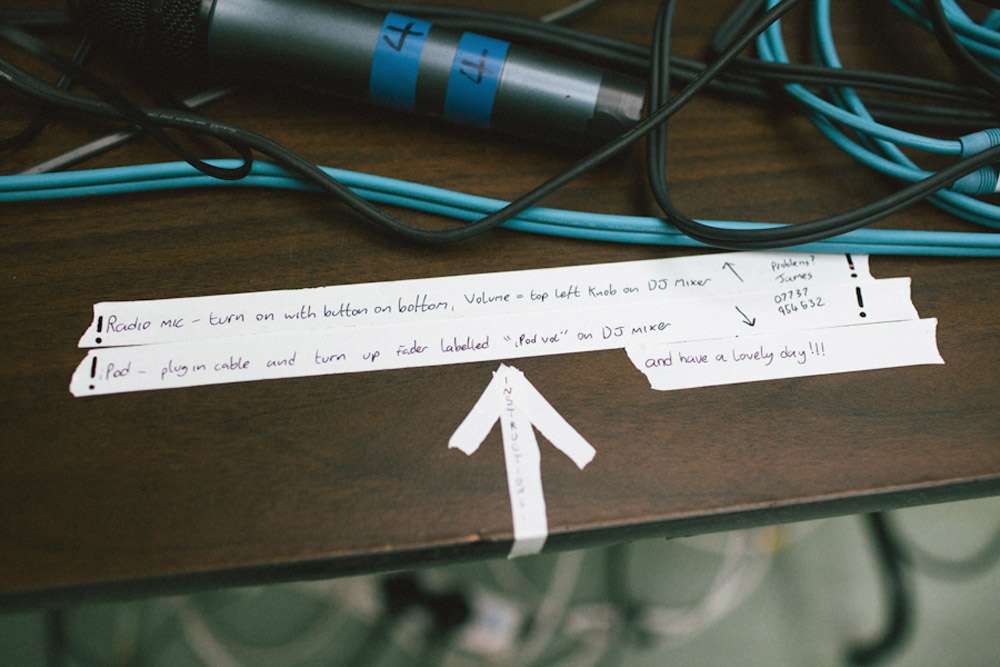 4 4
! Radio mic - turn on with button on bottom, Volume = top left knob on DJ mixer
Problems?
James
07737
956532
!
! iPod - plug in cable and turn up fader labelled "iPod vol" on DJ mixer
!
and have a lovely day!!!
INSTRUCTIONS